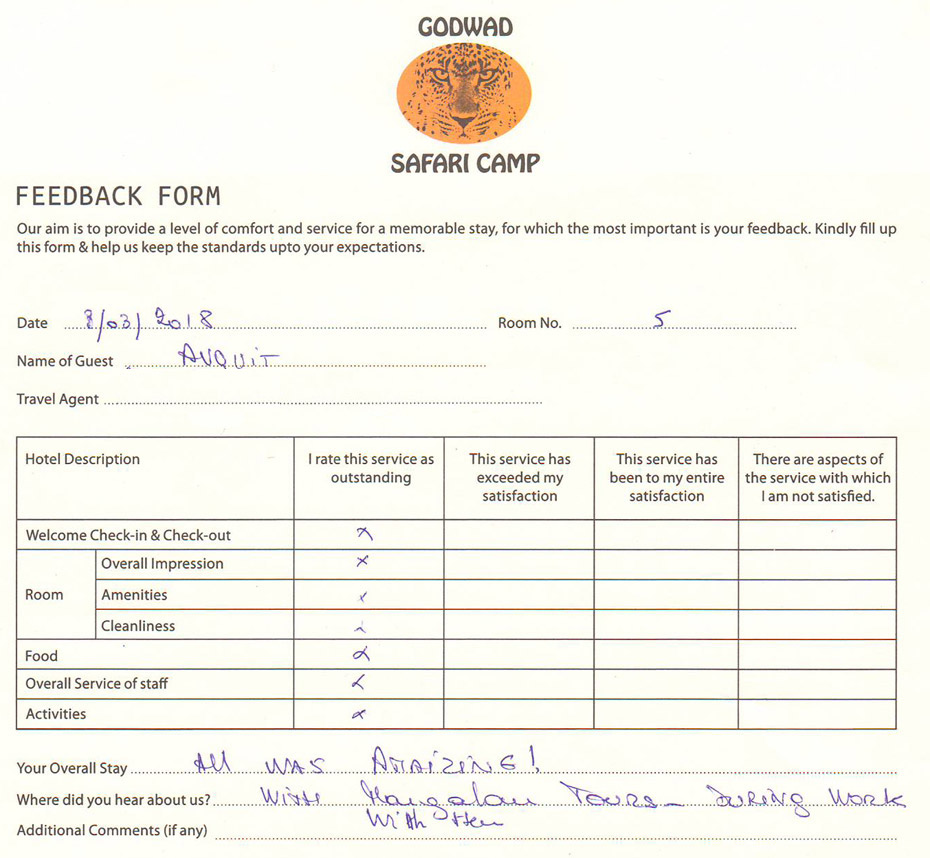 GODWAD
SAFARI CAMP
FEEDBACK FORM
Our aim is to provide a level of comfort and service for a memorable stay, for which the most important is your feedback. Kindly fill up
this form & help us keep the standards upto your expectations.
Date 8/03/2018 Room No. 5
Name of Guest AUQUIT
Travel Agent
Hotel Description
I rate this service as
outstanding
This service has
exceeded my
satisfaction
This service has
been to my entire
satisfaction
There are aspects of
the service with which
I am not satisfied.
Welcome Check-in & Check-out x
Room
Overall Impression x
Amenities x
Cleanliness x
Food x
Overall Service of staff x
Activities x
Your Overall Stay All WAS AMAIZING!
Where did you hear about us? WITH Mangalam TOURS - DURING WORK
With
Additional Comments (if any)